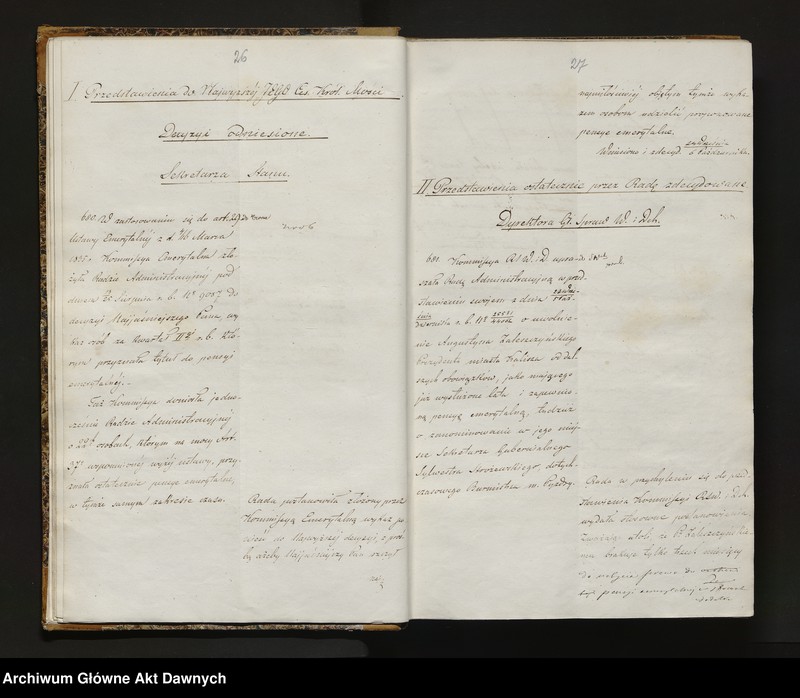 26
I Przedstawienia do Najwyższéj JEGO Ces. Król. Mości
Decyzyi odniesione.
Sekretarza Stanu.
680. W zastosowaniu się do art.
Ustawy Emerytalnéj z d. Marca
r. Kommissya Emerytalna zło-
żyła Radzie Administracyjnéj pod
dniem Sierpnia r. b. Nº 9057 do
decyzyi Najjaśniejszego Pana, wy-
kaz osób za Kwartał r. b. któ-
rym przyznała tytuł do pensyi
emerytalnéj.
Taż Kommissya doniosła jedno-
cześnie Radzie Administracyjnéj
o 22 osobach, którym na mocy Art.
37 wspomnionéj wyżéj ustawy, przy-
znała ostatecznie pensye emerytalne,
w tymże samym zakresie czasu.
Rada postanowiła złożony przez
Kommissyą Emerytalną wykaz po-
nieść do Najwyższéj decyzyi, z proś-
bą ażeby Najjaśniejszy Pan raczył
naj
27
najmiłościwiéj objętym tymże wyka-
zem osobom udzielić proponowane
pensye emerytalne.
Wniesiono i zdecyd.
Października
II Przedstawienia ostatecznie przez Radę zdecydowane
Dyrektora Gł. Spraw W. i Duch.
681. Kommissya R. S. W. i D. upra-
szała Radę Administracyjną w przed-
stawieniu swojém z dnia
Września r. b. Nº o uwolnie-
nie Augustyna Zaleszczyńskiego
Prezydenta miasta Kalisza od dal-
szych obowiązków, jako mającego
już wysłużone lata i zapewnio-
ną pensyę emerytalną, tudzież
o zanominowanie w jego miej-
sce Sekretarza Gubernialnego
Sylwestra Stróżewskiego dotych-
czasowego Burmistrza m. Pyzdry.
Rada w przychyleniu się do przed-
stawienia Kommissyi R. S. W. i Duch.
wydała stosowne postanowienie.
Zważając atoli, że P. Zaleszczyńskie-
mu brakuje tylko trzech miesięcy
do nabycia prawa do
pensyi emerytalnéj
Archiwum Główne Akt Dawnych